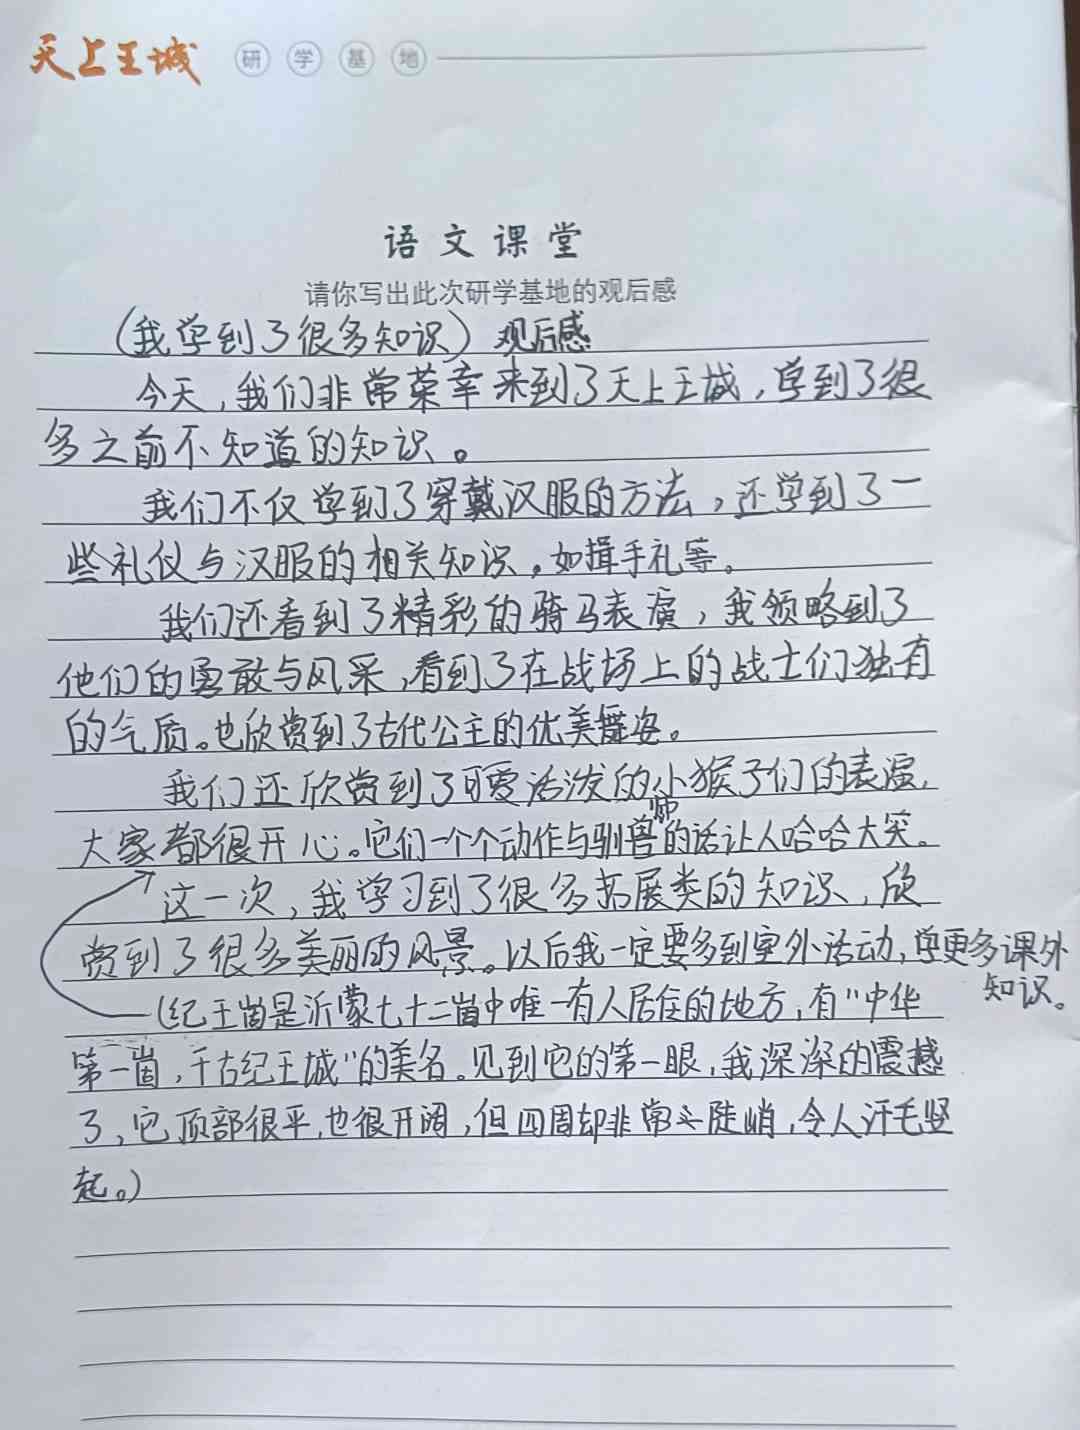 天上王城 研学基地
语文课堂
请你写出此次研学基地的观后感
(我学到了很多知识)观后感
今天,我们非常荣幸来到了天上王城,学到了很
多之前不知道的知识。
我们不仅学到了穿戴汉服的方法,还学到了一
些礼仪与汉服的相关知识。如揖手礼等。
我们还看到了精彩的骑马表演,我领略到了
他们的勇敢与风采,看到了在战场上的战士们独有
的气质。也欣赏到了古代公主的优美舞姿。
我们还欣赏到了可爱活泼的小猴子们的表演,
大家都很开心。它们一个个动作与驯兽师的话让人哈哈大笑。
这一次,我学习到了很多拓展类的知识,欣
赏到了很多美丽的风景。以后我一定要多到室外活动,学更多课外
知识。
(纪王崮是沂蒙七十二崮中唯一有人居住的地方,有"中华
第一崮,千古纪王城"的美名。见到它的第一眼,我深深的震撼
了,它顶部很平,也很开阔,但四周却非常陡峭,令人汗毛竖
起。)